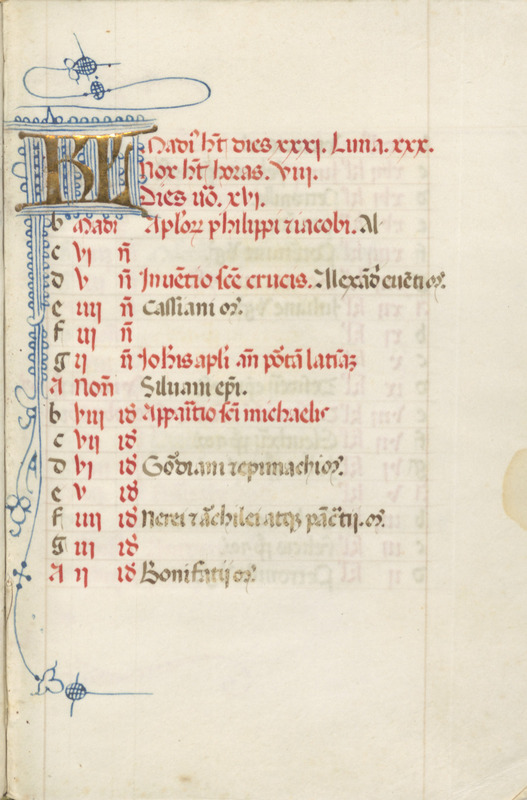 KL Madī ht̄ dies xxxi. Luna. xxx.
Nox ht̄ horas. viii.
Dies ūo. xvi.
b Madī Apl'orꝝ philippi ⁊ iacobi. Al
c vi n̄
d v n̄ Inuētio scē crucis. Alexād' euēti or̄.
e iiii n̄ Cassiani or̄.
f iii n̄
g ii n̄ Joh̄is apl̄i an̄ portā latinā
A Non̄ Siluani epī.
b viii id' Appari̅tio scī michaelis
c vii id'
d vi id' Gordiani ⁊ epimachi or̄.
e v id'
f iiii id' Nerei ⁊ achilei atqꝫ pācr̄tij. or̄.
g iii id'
A ii id' Bonifatij or̄